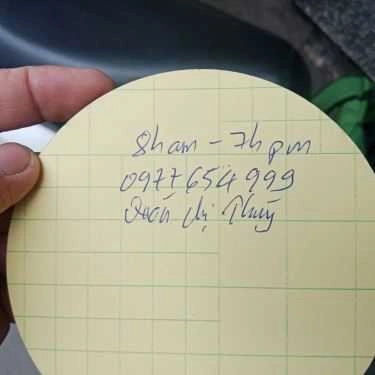 8h am - 7h pm
0977654999
Quán chị Thúy